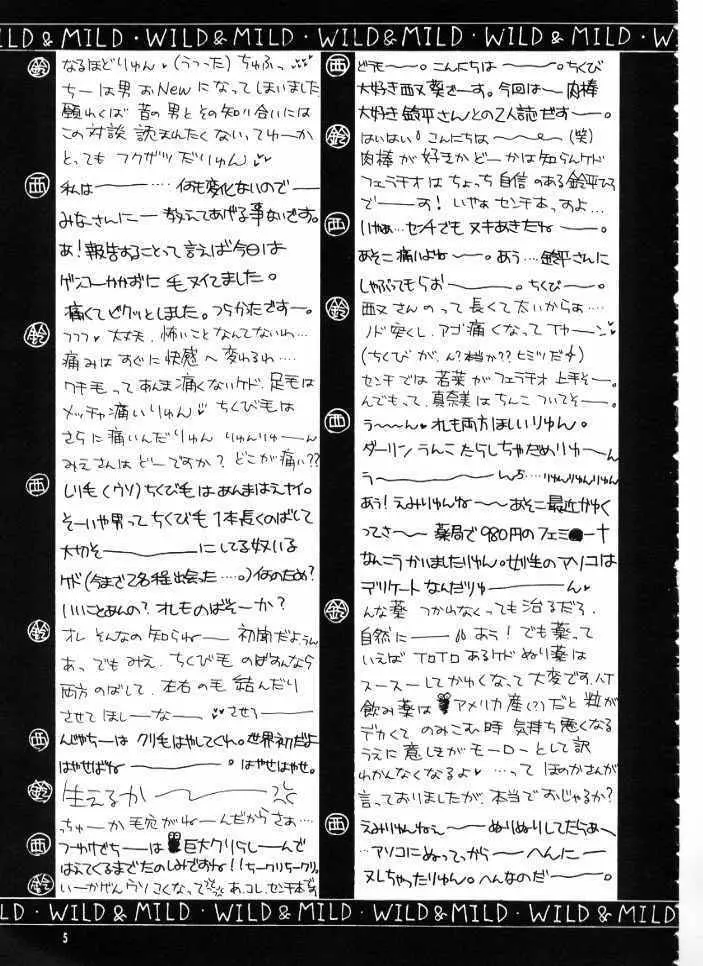 WILD & MILD・WILD & MILD・WILD & MILD・WILD & MILD
西 どうも〜。こんにちは〜。ちくび
大好き西又葵でーす。今回は〜肉棒
大好き鈴平さんとの2人誌です〜。
鈴 はいはい。こんにちは〜(笑)
肉棒が好きかどーかは知らんケド
フェラチオはちょっち自信のある鈴平ひろ
で〜す!いやぁセンチあっすよ…
西
あそこ痛いよね〜。あう…鈴平さんに
しゃぶってもらお〜。ちくび〜。
鈴 西又さんのって長くて太いからぁ…
ノド突くし、アゴ痛くなって
(ちくびが、ん?本当か??ヒミツだ
西 う〜ん。れも両方ほしいりゅん。
ダーリンうんこたらしちゃだめりゅ〜ん
う〜んち…りゅんりゅんりゅん
あう!えみりゅんね〜あそこ最近かゆく
ってさ〜薬局で980円のフェミ●ー†
なんこうかいましたりゅん。女性のアソコは
デリケートなんだりゅ〜ん。
鈴 んな薬つかわなくっても治るだろ。
自然に〜あう!でも薬って
いえばイロイロあるケドぬり薬は
スースーしてかゆくなって大変です。
飲み薬はアメリカ産(?)だと粒が
デカくてのみこむ時気持ち悪くなる
うえに意しきがモーローとして訳
わかんなくなるよ…ってほのかさんが
言っておりましたが、本当でおじゃるか?
西 えみりゅんねぇ〜ぬりぬりしてたらあ〜
…アソコにぬってっから〜へんに〜
ヌレちゃったりゅん。へんなのだ〜。
鈴 なるほどりゅん。(うつった)ちゅふっ
ちーは男おNewになってしまいました
願わくば昔の男とその知り合いには
この対談読まれたくないってゆーか
とってもフクザツだりゅん
西 私は〜…何も変化ないので〜
みなさんに〜教えてあげる事ないです。
あ!報告することって言えば今日は
ゲンコーかかずに毛ヌイてました。
痛くてビクッとしました。つらかたですー。
鈴 フフフ 大丈夫、怖いことなんてないわ…
痛みはすぐに快感へ変わるわ…
ワキ毛ってあんま痛くないケド、足毛は
メッチャ痛いりゅん ちくび毛は
さらに痛いんだりゅん りゅんりゅーん
みえさんはどーですか?どこが痛い??
西 しり毛(ウソ)ちくび毛はあんまはえナイ。
そーいや男ってちくび毛1本長くのばして
大切そ〜にしてる奴いる
ケド(今まで名程出会った…。)何のため?
いいことあんの?オレものばそーか?
鈴 オレそんなの知らねー 初聞だよぅ
あっでもみえ、ちくび毛のばすんなら
両方のばして、左右の毛結んだり
させてほしーなー、させろー
西 んじゃちーはクリ毛はやしてくれ。世界初だよ
はやせばね〜。はやせはやせ。
鈴 生えるか〜
ちゅーか毛穴がねーんだからさぁ…
西 つーわけでちーは巨大クリらしーんで
はえてくるまでたのしみですね!!ちークリちークリ。
鈴 いーかげんウソコくなって あ、コレ、センチ本
WILD・WILD & MILD・WILD & MILD・WILD & MILD・WILD & MILD
5